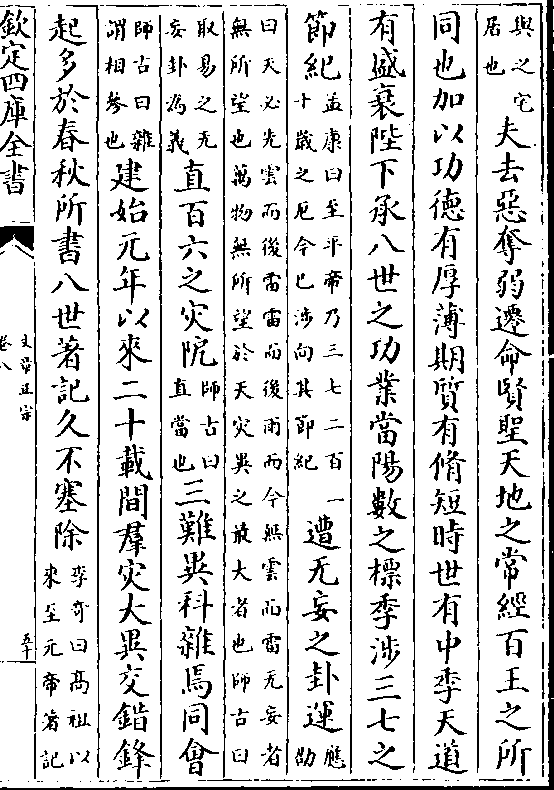 與之宅
居也
夫去惡奪弱遷命賢聖天地之常經百王之所
同也加以功德有厚薄期質有脩短時世有中季天道
有盛衰陛下承八世之功業當陽數之標季涉三七之
節紀
孟康曰至平帝乃三七二百一
十歲之厄今已涉向其節紀
遭无妄之卦運
應
劭
曰天必先雲而後雷雷而後雨而今無雲而雷无妄者
無所望也萬物無所望於天灾異之最大者也師古曰
取易之无
妄卦為義
直百六之灾阨
師古曰
直當也
三難異科雜焉同會
師古曰雜
謂相參也
建始元年以來二十載間羣灾大異交錯鋒
起多於春秋所書八世著記久不塞除
李奇曰高祖以
來至元帝著記
欽定四庫全書
文章正宗
卷八
五十